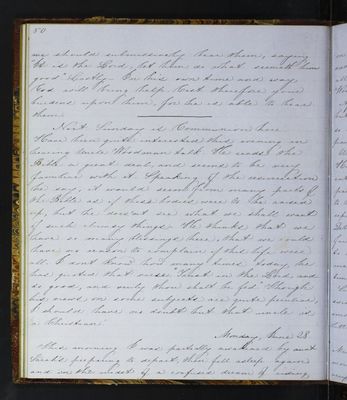 80
we should submissively bear them, saying
"It is the Lord, let him do what seemeth him
good." Lastly. In his own time and way
God will bring help. Cast therefore your
burdens upon him, for he is able to bear
them.
Next Sunday is Communion here.
Have been quite interested this evening in
hearing Uncle talk. He reads the
Bible a great deal, and seems to be quite
familiar with it. Speaking of the resurrection
he says, it would seem from many parts of
the Bible as if these bodies were to be raised
up, but he does'nt see what we shall want
of such clumsy things. He thinks that we
have so many blessings here, that we could
have no reason to complain if this life were
all. I don't know how many times today he
has quoted that verse "Trust in the Lord and
do good, and verily thou shalt be fed." Though
his views on some subjects are quite peculiar,
I should have no doubt but that uncle is
a Christian.
Monday, June 28.
This morning I was partially awakened by aunt
Sarah's preparing to depart, then fell asleep again
and in the midst of a confused dream of